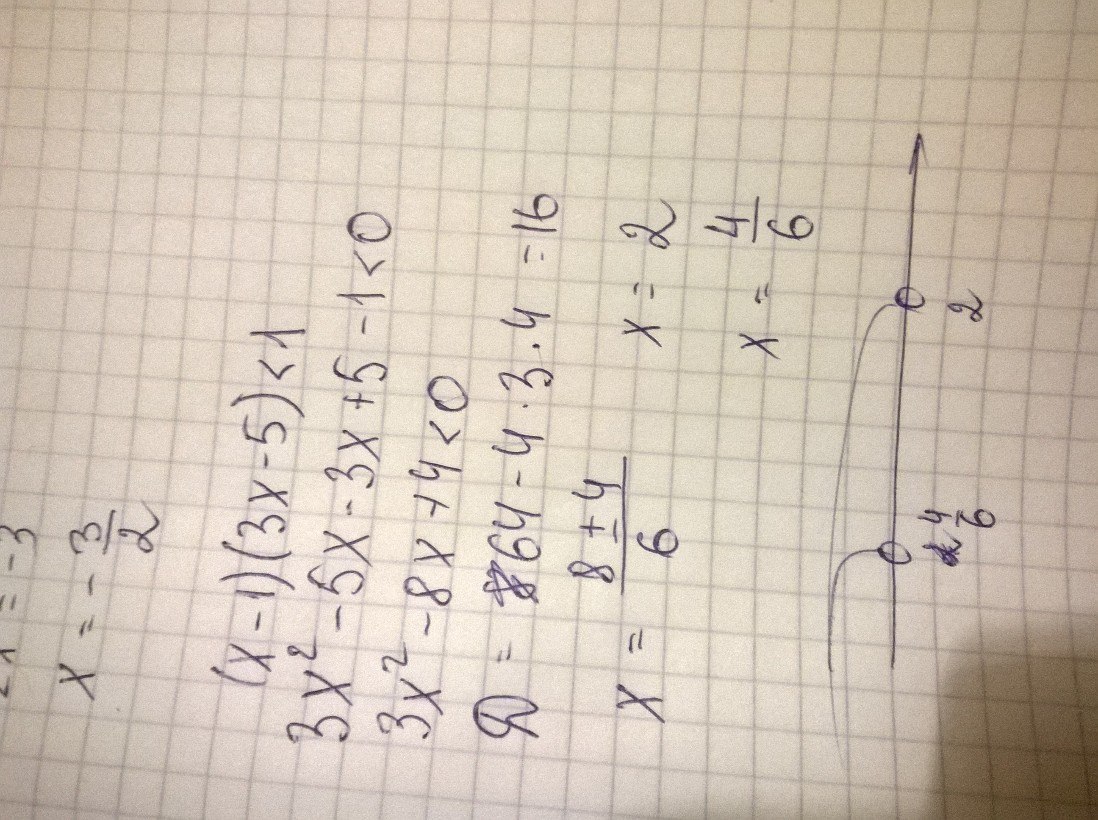 x = -3
x = - 3/2
(x-1)(3x-5)<1
3x² -5x-3x+5-1<0
3x² -8x+4<0
D = 64-4·3·4 =16
x = (8±4)/6 x = 2
x = 4/6
4/6 2